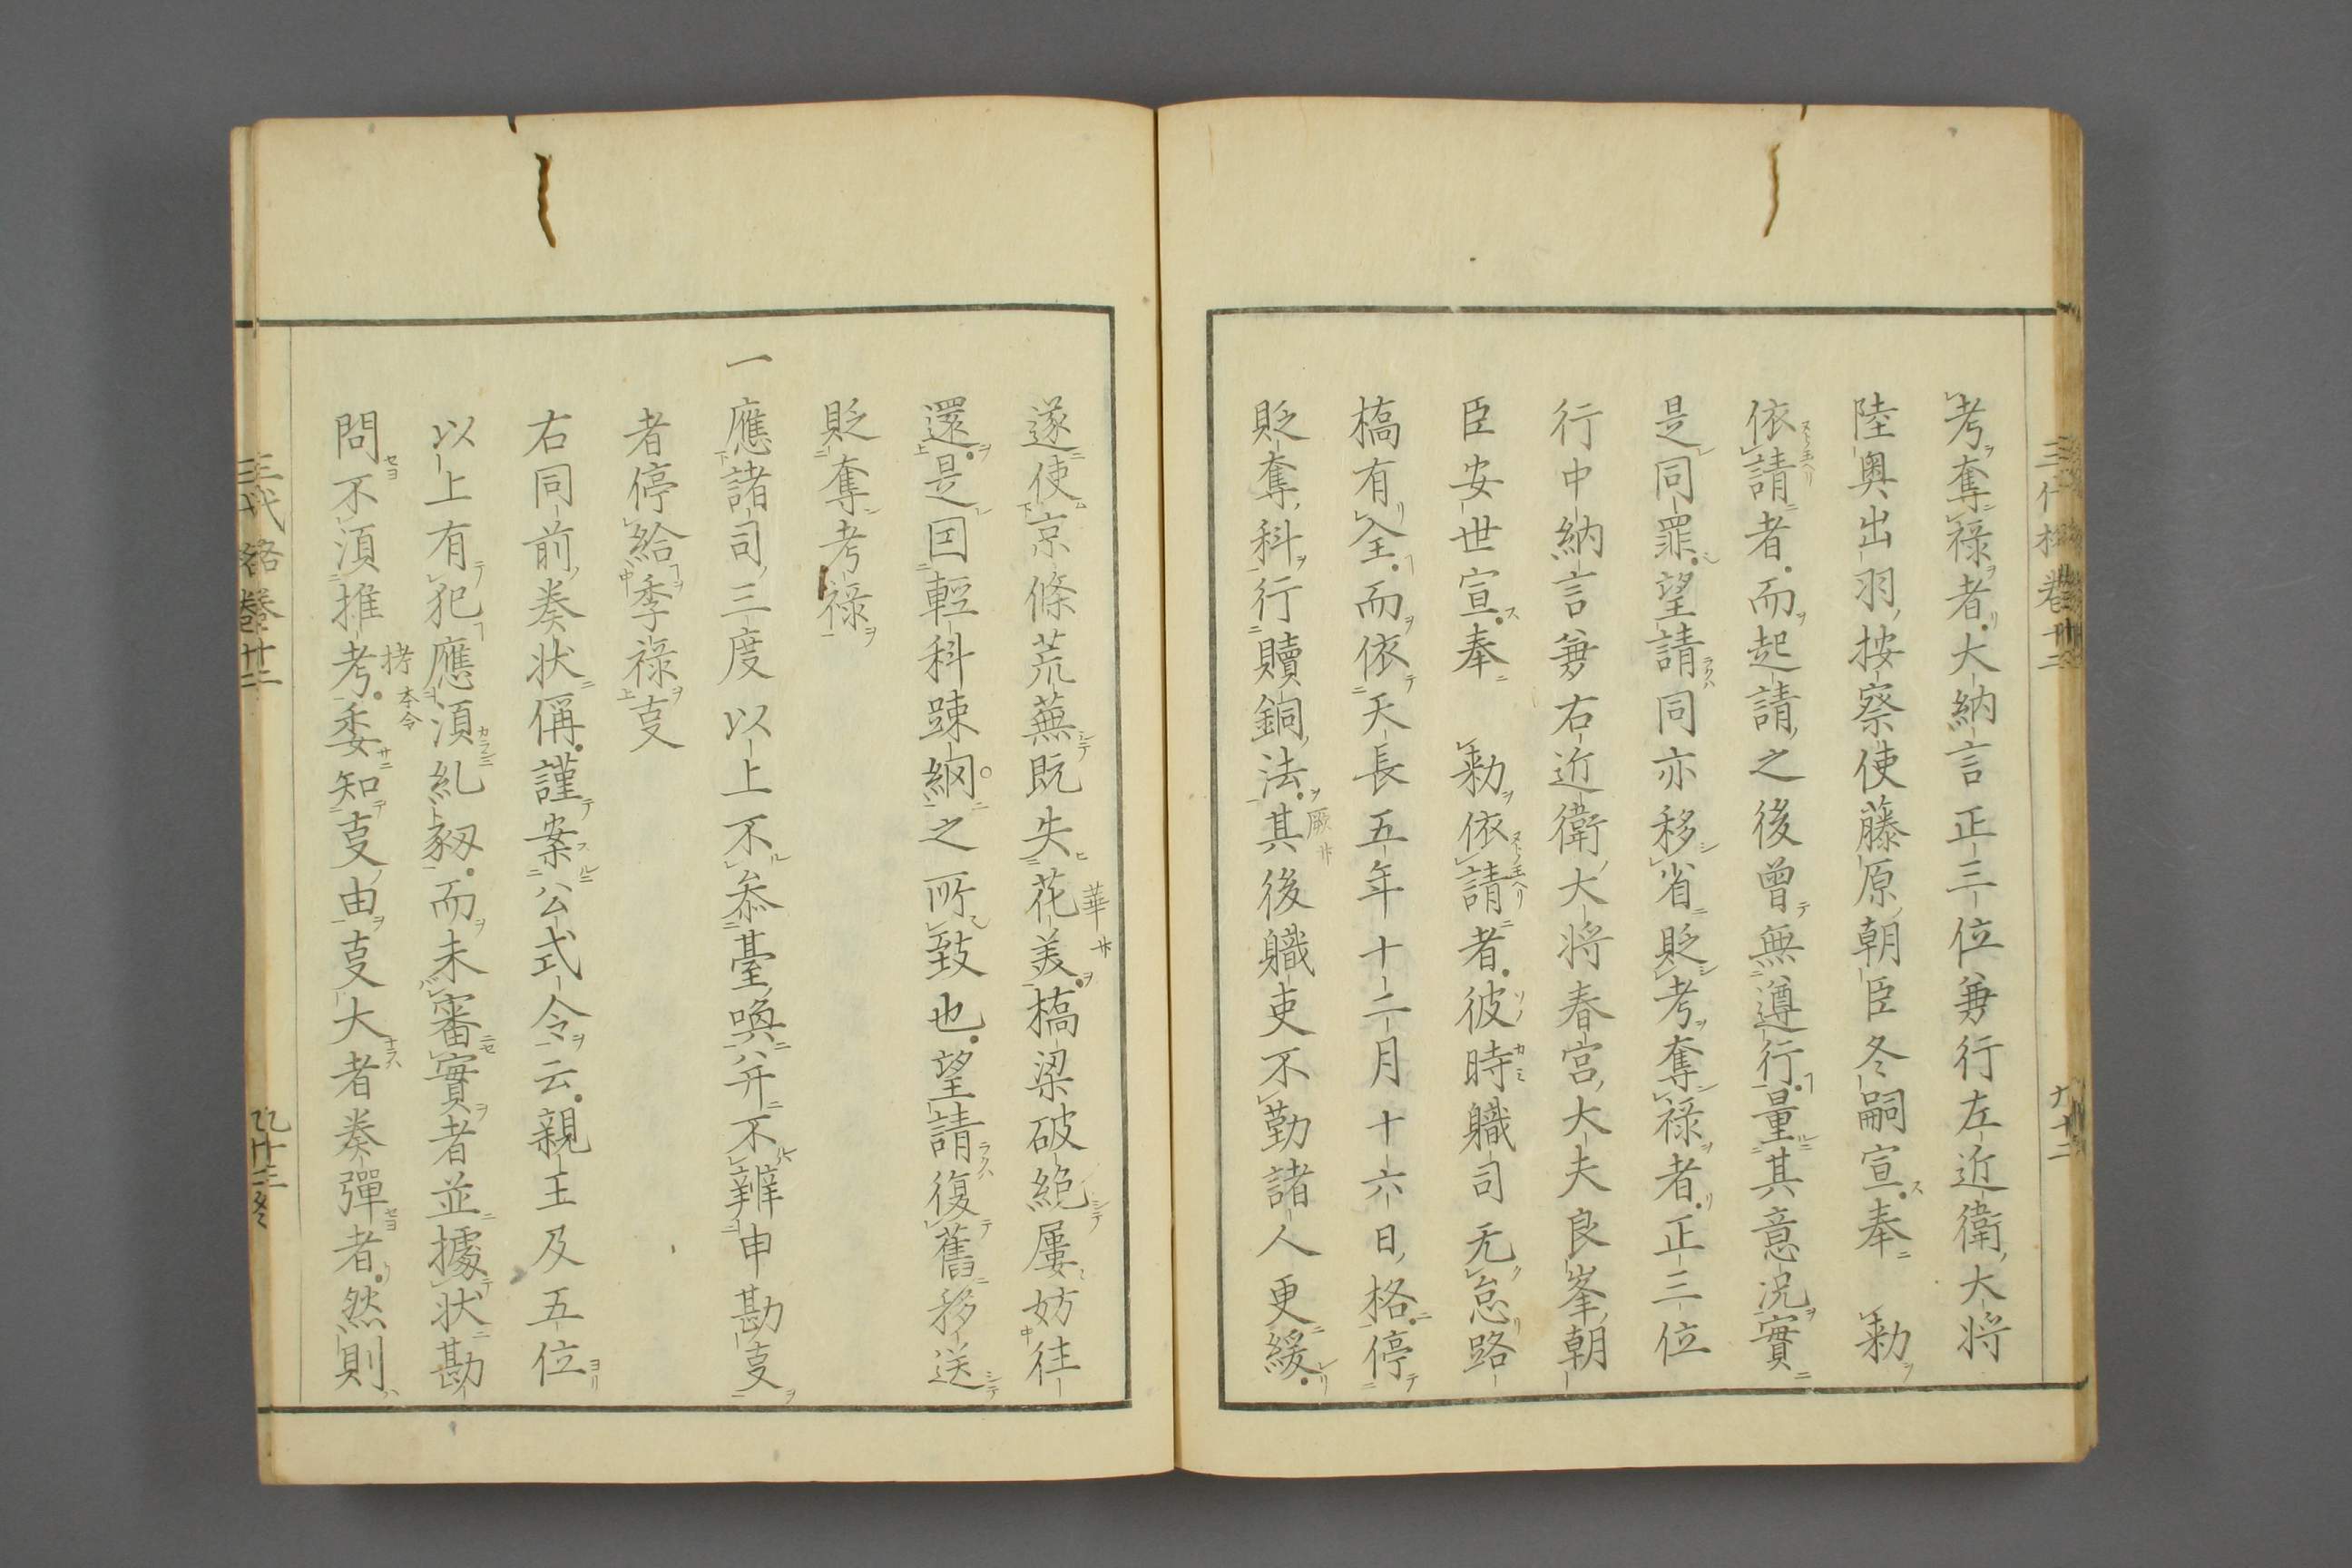 考奪祿者大納言正三位兼行左近衛大将
陸奥出羽按察使藤原朝臣冬嗣宣奉　勅
依請者而起請之後曽無遵行量其意況實
是同罪望請同亦移省貶考奪祿者正三位
行中納言兼右近衛大将春宮大夫良峯朝
臣安世宣奉　勅依請者彼時職司无怠路
橋有全而依天長五年十二月十六日格停
貶奪科行贖銅法其後職吏不勤諸人更緩
遂使京條荒蕪既失花美橋梁破絶屢妨往
還是因輕科踈網之所致也望請復舊移送
貶奪考祿
一應諸司三度以上不叅臺喚并不辨申勘㕝
者停給季祿㕝
右同前奏状偁謹案公式令云親王及五位
以上有犯應湏糺劾而未審實者並據状勘
問不湏推考委知㕝由㕝大者奏彈者然則
三代格卷廿二